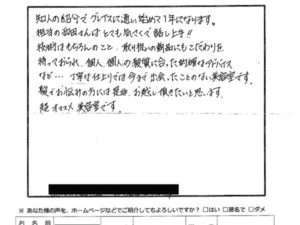 知人の紹介でグレイスに通い始めて1年になります。
担当の さんは とても気さくで 話し上手!!
技術はもちろんのこと、取り扱いの商品にもこだわりを
持っておられ、個人、個人の髪質に合った的確なアドバイス
など… 丁寧な仕上りでは今まで出会ったことのない美容室です。
髪でお悩みの方には是非、お越し頂きたいと思います。
超オススメ 美容室です。
※ あなた様の声を、ホームページなどでご紹介してもよろしいですか? □はい □匿名で □ダメ
お 名 前